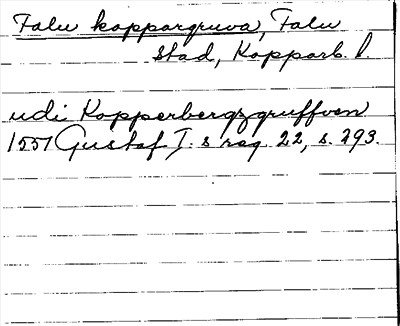 Falu koppargruva, Falu
stad, Kopparb. l.
udi Kopperbergzgruffven
1557 Gustaf I:s reg. 22, s. 293.